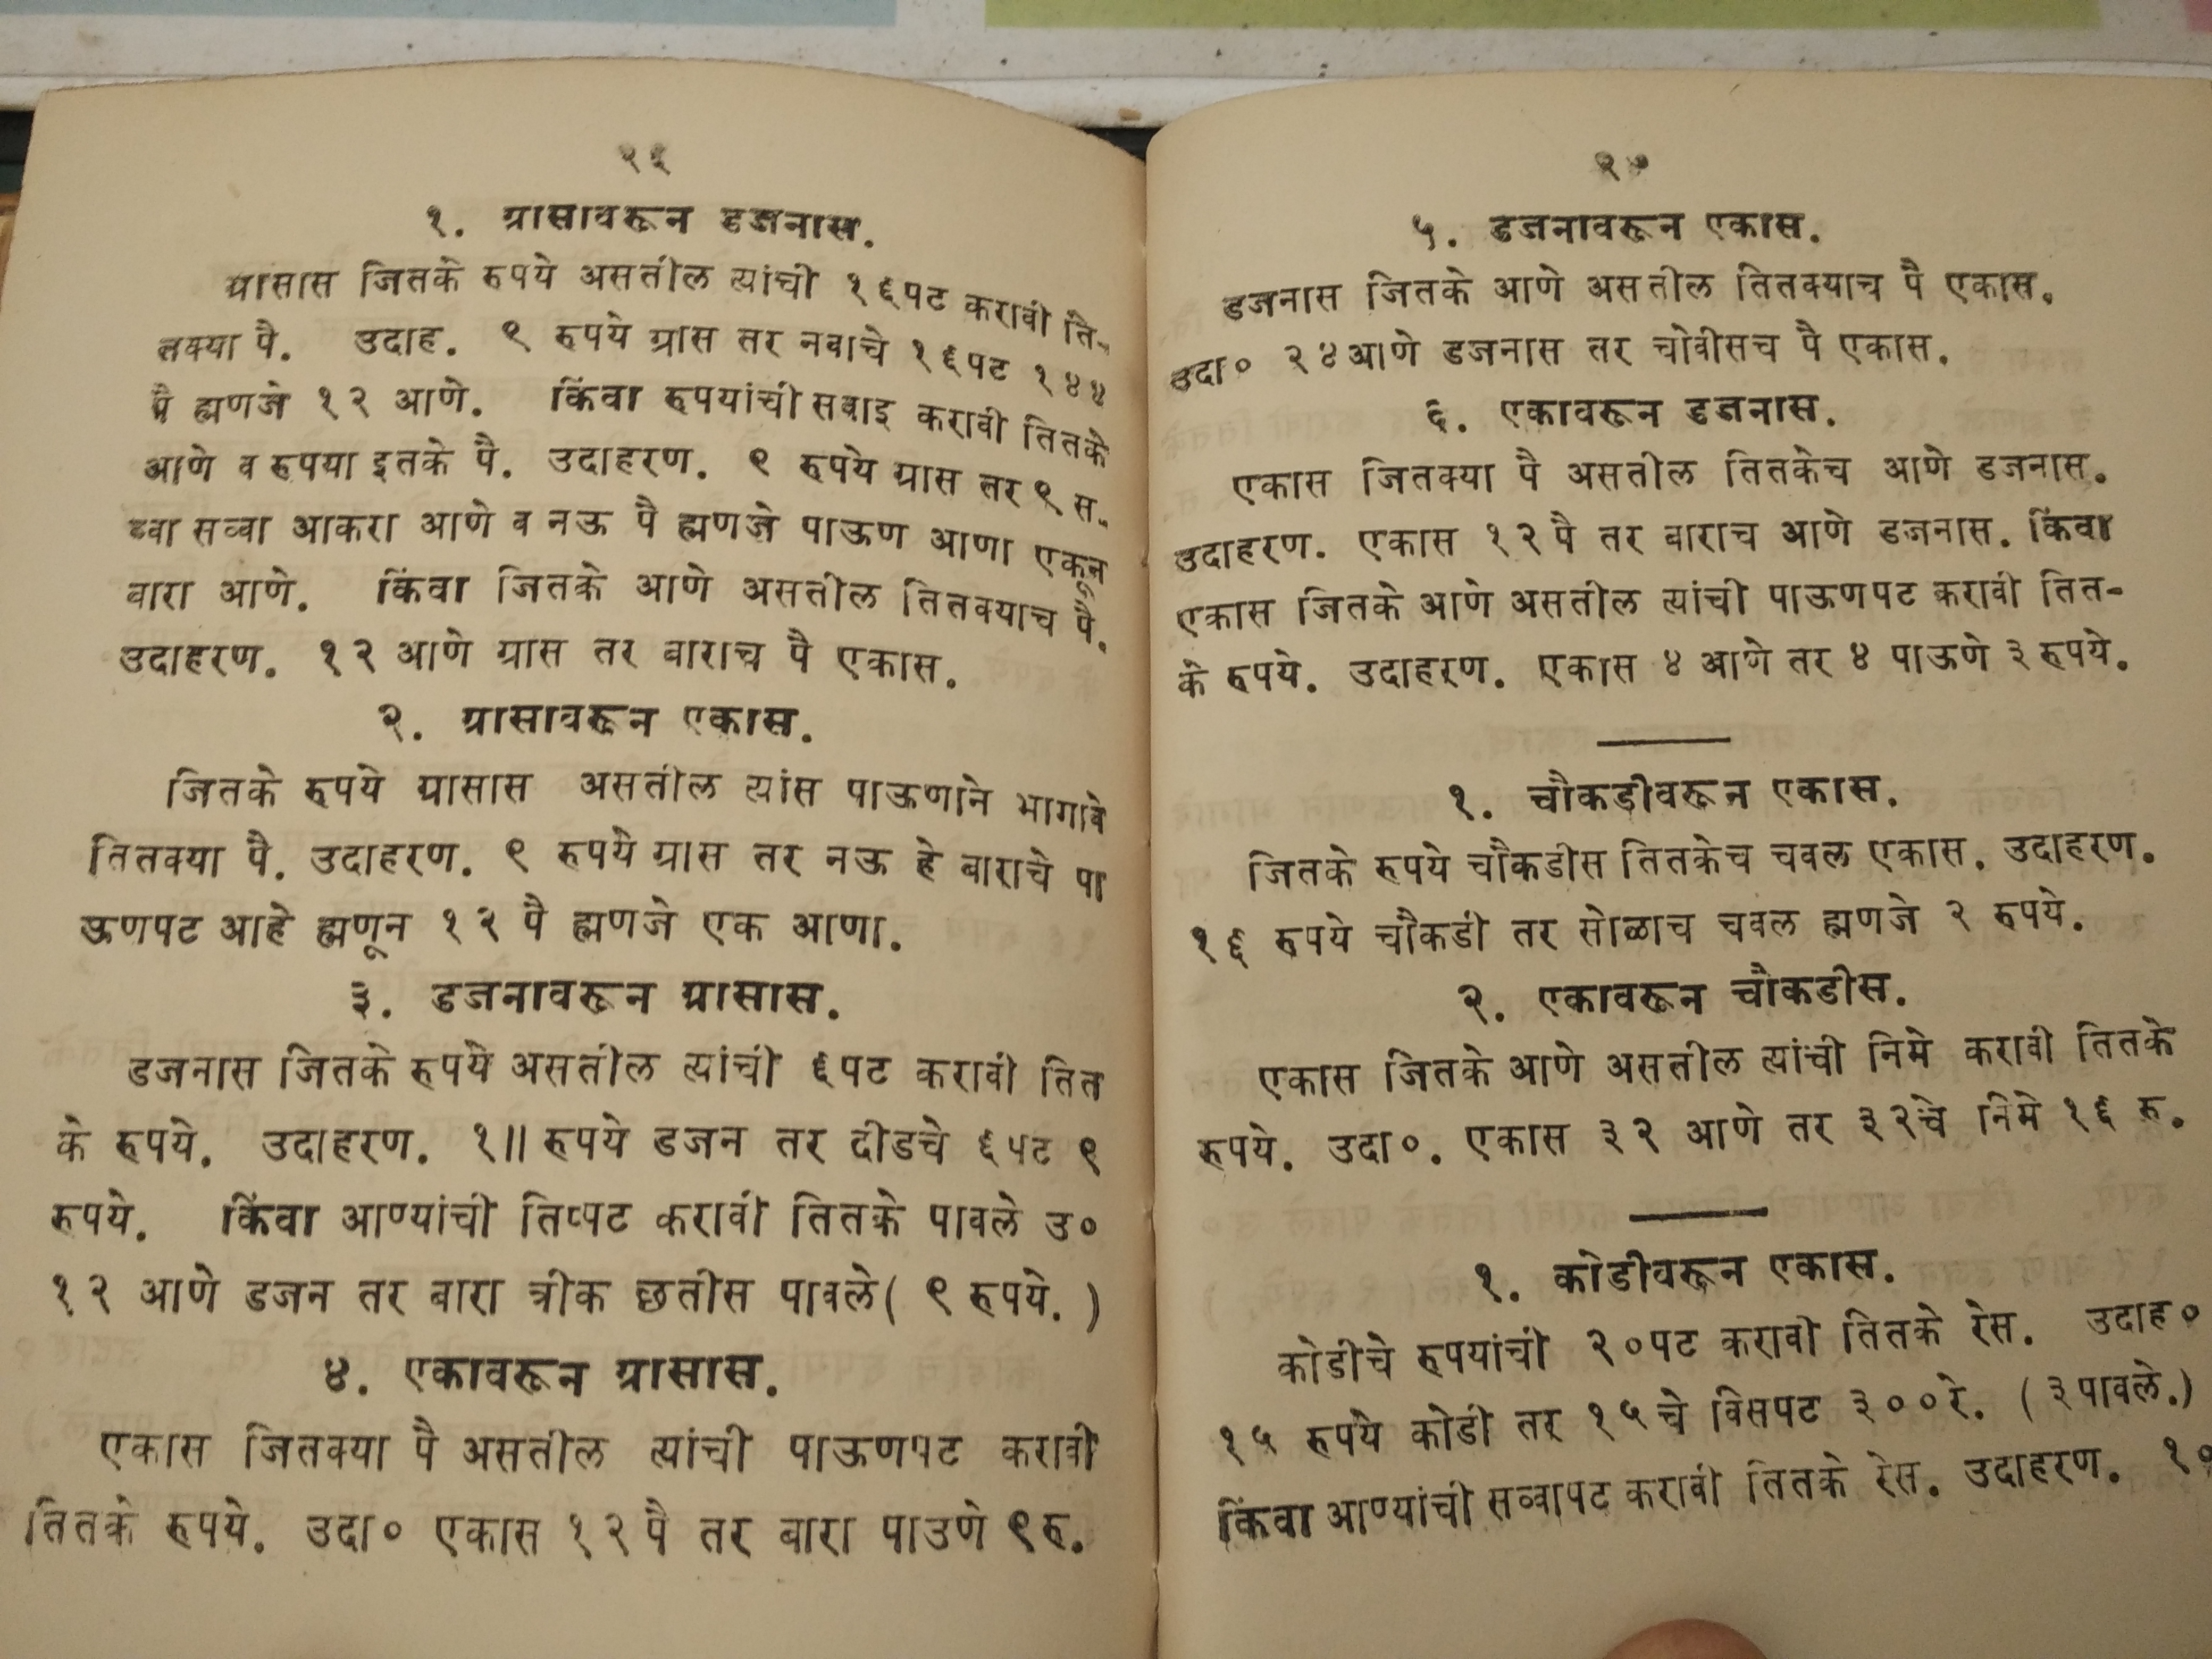 २६
१. ग्रासावरून डजनास.
ग्रासास जितके रुपये असतील त्यांची १६पट करावी ति-
तक्या पै. उदाह. ९ रुपये ग्रास तर नवाचे १६पट १४४
पै ह्मणजे १२ आणे. किंवा रुपयांची सवाइ करावी तितके
आणे व रुपया इतके पै. उदाहरण. ९ रुपये ग्रास तर ९ स-
व्वा सव्वा आकरा आणे व नऊ पै ह्मणजे पाऊण आणा एकून
बारा आणे. किंवा जितके आणे असतील तितक्याच पै.
उदाहरण. १२ आणे ग्रास तर बाराच पै एकास.
२. ग्रासावरून एकास.
जितके रुपये ग्रासास असतील त्यांस पाऊणाने भागावे
तितक्या पै. उदाहरण. ९ रुपये ग्रास तर नऊ हे बाराचे पा
ऊणपट आहे ह्मणून १२ पै ह्मणजे एक आणा.
३. डजनावरून ग्रासास.
डजनास जितके रुपये असतील त्यांची ६पट करावी तित
के रुपये. उदाहरण. १॥ रुपये डजन तर दीडचे ६पट ९
रुपये. किंवा आण्यांची तिप्पट करावी तितके पावले उ०
१२ आणे डजन तर बारा त्रीक छतीस पावले( ९ रुपये. )
४. एकावरून ग्रासास.
एकास जितक्या पै असतील त्यांची पाऊणपट करावी
तितके रुपये. उदा० एकास १२पै तर बारा पाउणे ९रु.
२७
५. डजनावरून एकास.
डजनास जितके आणे असतील तितक्याच पै एकास.
उदा० २४आणे डजनास तर चोवीसच पै एकास.
६. एकावरून डजनास.
एकास जितक्या पै असतील तितकेच आणे डजनास.
उदाहरण. एकास १२पै तर बाराच आणे डजनास. किंवा
एकास जितके आणे असतील त्यांची पाऊणपट करावी तित-
के रुपये. उदाहरण. एकास ४ आणे तर ४ पाऊणे ३रुपये.
१. चौकडीवरून एकास.
जितके रुपये चौकडीस तितकेच चवल एकास. उदाहरण.
१६ रुपये चौकडी तर सोळाच चवल ह्मणजे २ रुपये.
२. एकावरून चौकडीस.
एकास जितके आणे असतील त्यांची निमे करावी तितके
रुपये. उदा०. एकास ३२ आणे तर ३२चे निमे १६ रु.
१. कोडीवरून एकास.
कोडीचे रुपयांची २०पट करावी तितके रेस. उदाह०
१५ रुपये कोडी तर १५चे विसपट ३००रे. (३पावले.)
किंवा आण्यांची सव्वापट करावी तितके रेस. उदाहरण. १०